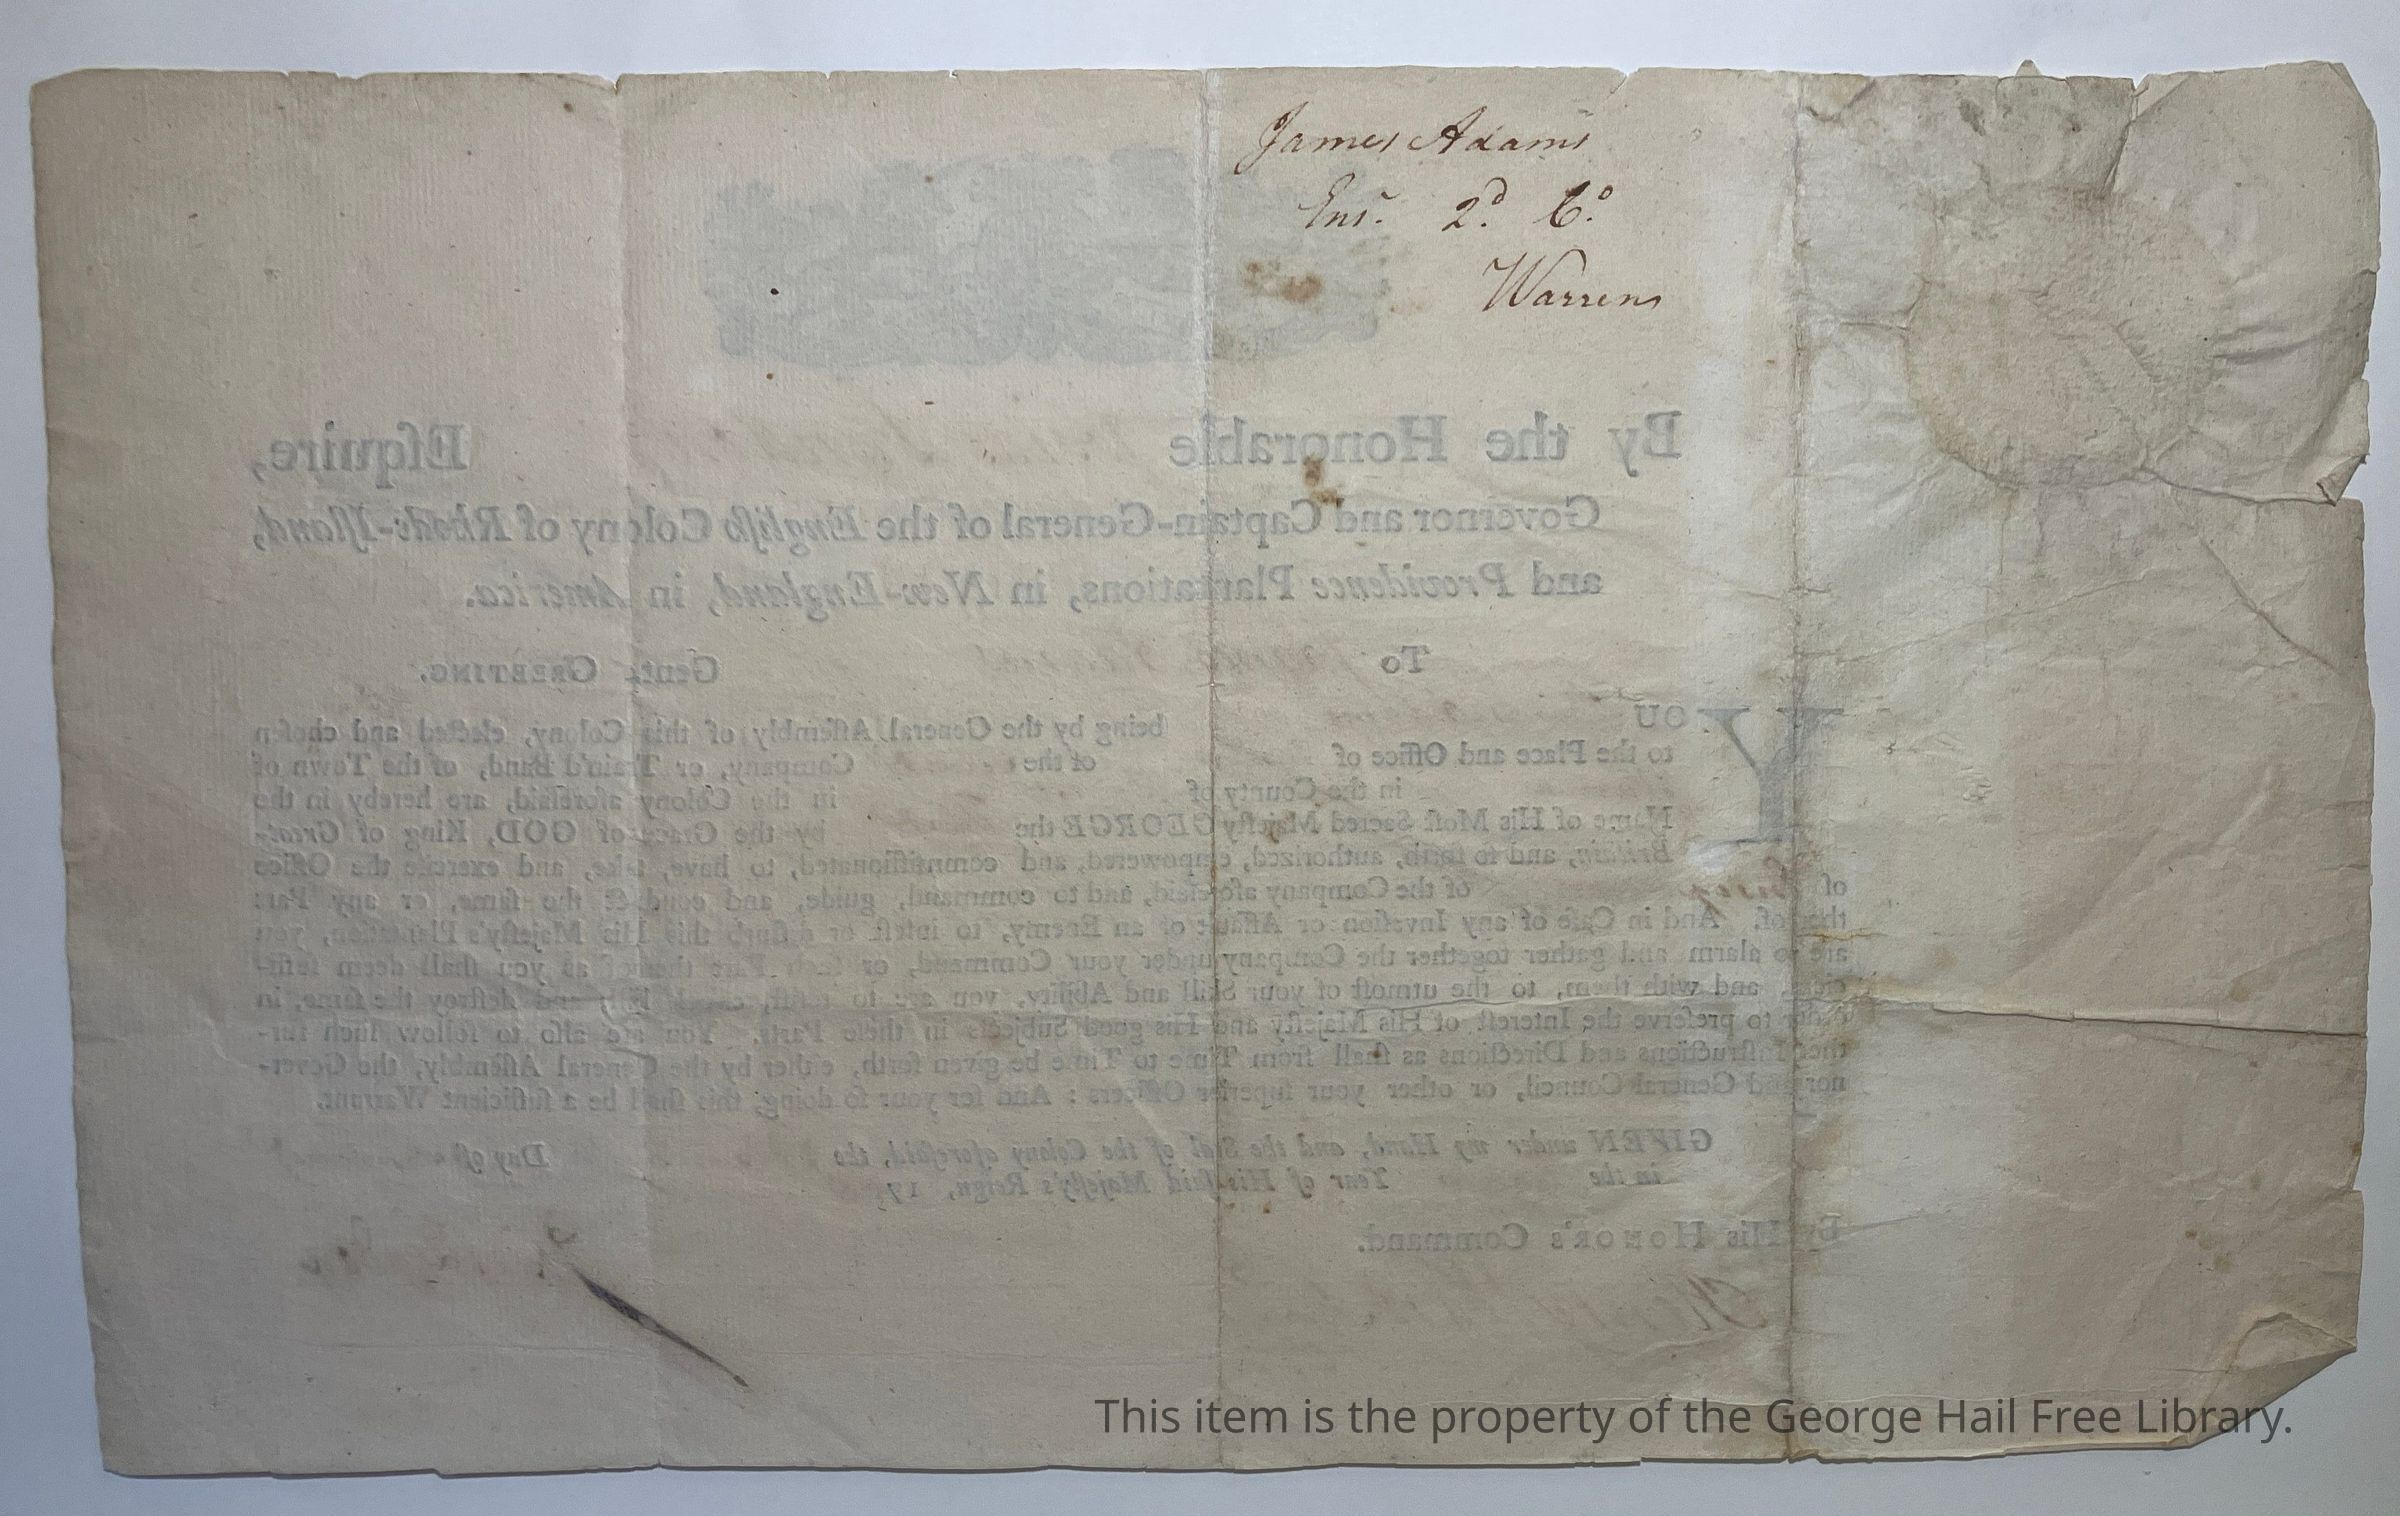 James Adams
Ens.ⁿ 2.ᵈ Cº.
Warren
By the Honorable Eſquire,
Governor and Captain-General of the Engliſh Colony of Rhode-Iſland,
and Providence Plantations, in New-England, in America.
To Gent. GREETING.
YOU being by the General Aſſembly of this Colony, elected and choſen
to the Place and Office of of the Company, or Train'd Band, of the Town of
in the County of in the Colony aforeſaid, are hereby in the
Name of His Moſt Sacred Majeſty GEORGE the by the Grace of GOD, King of Great-
Britain, and ſo forth, authorized, empowered, and commiſſionated, to have, take, and exerciſe the Office
of Enſign of the Company aforeſaid, and to command, guide, and conduct the ſame, or any Part
thereof. And in Caſe of any Invaſion or Aſſault of an Enemy, to infeſt or diſturb this His Majeſty's Plantation, you
are to alarm and gather together the Company under your Command, or ſuch Part thereof as you ſhall deem ſuffi-
cient, and with them, to the utmoſt of your Skill and Ability, you are to reſiſt, expel, kill, and deſtroy the ſame, in
order to preſerve the Intereſt of His Majeſty and His good Subjects in theſe Parts. You are alſo to follow ſuch fur-
ther Inſtructions and Directions as ſhall from Time to Time be given forth, either by the General Aſſembly, the Gover-
nor and General Council, or other your ſuperior Officers: And for your ſo doing, this ſhall be a ſufficient Warrant.
GIVEN under my Hand, and the Seal of the Colony aforeſaid, the Day of
in the Year of His ſaid Majeſty's Reign, 17
By His HONOR's Command.
This item is the property of the George Hail Free Library.